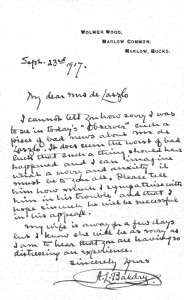 WOLMER WOOD,
MARLOW COMMON,
MARLOW, BUCKS.
Sept. 23rd 1917.
My dear Mrs de Laszlo
I cannot tell you how sorry I was
to see in today's "Observer" such a
piece of bad news about Mr de
Laszlo. It does seem the worst of bad
luck that such a thing should have
happened and I can imagine
what a worry and anxiety it
must be to you all. Please tell
him how much I sympathise with
him in his trouble, and that I
hope sincerely he will be successful
in his appeal.
My wife is away for a few days
but I know she will be as sorry as
I am to hear that you are having so
distressing an experience.
Sincerely yours
A. L. Baldry.